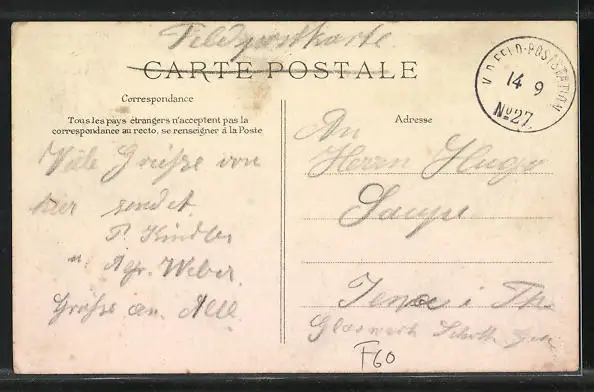 Feldpostkarte
CARTE POSTALE
K.D.FELD-POSTSTATION
14 9
No 27
Correspondance
Tous les pays étrangers n'acceptent pas la
correspondance au recto, se renseigner à la Poste
Viele Grüsse von
hier sendet
P. Kindler
u. Weber.
Grüsse an Alle
Adresse
An
Herrn Hugo
Saupe
Jena i Th
Glaswerk Schott Gen
F60